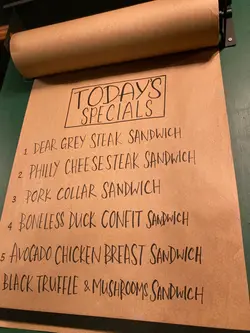 TODAY'S
SPECIALS
1 DEAR GREY STEAK SANDWICH
2 PHILLY CHEESESTEAK SANDWICH
3 PORK COLLAR SANDWICH
4 BONELESS DUCK CONFIT SANDWICH
5 AVOCADO CHICKEN BREAST SANDWICH
BLACK TRUFFLE & MUSHROOMS SANDWICH